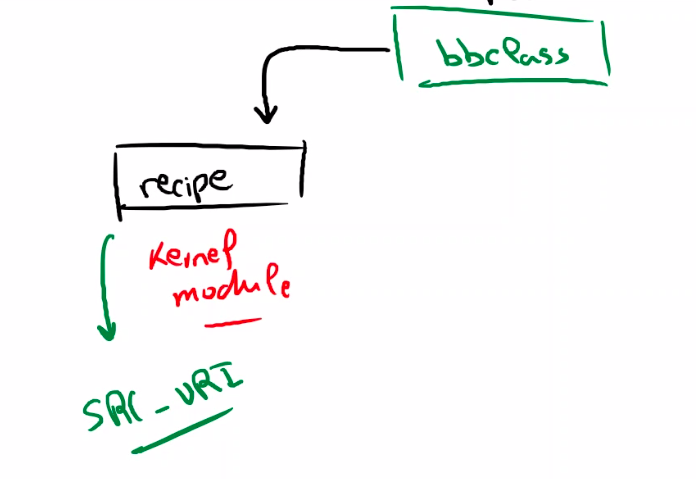 bbclass
recipe
Kernel
module
SRC_URI